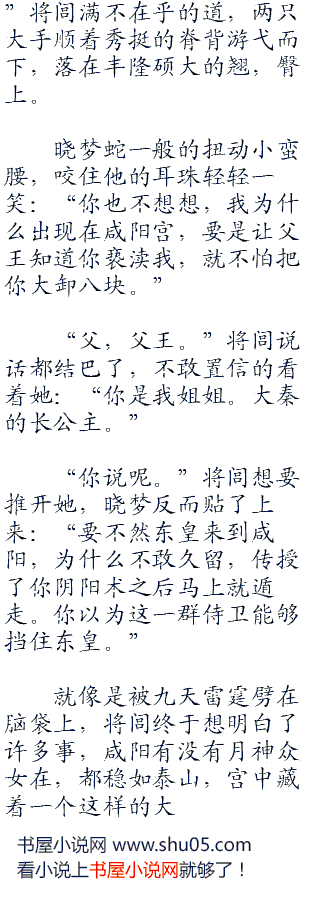 ”将闾满不在乎的道，两只
大手顺着秀挺的脊背游弋而
下，落在丰隆硕大的翘，臀
上。
晓梦蛇一般的扭动小蛮
腰，咬住他的耳珠轻轻一
笑：“你也不想想，我为什
么出现在咸阳宫，要是让父
王知道你亵渎我，就不怕把
你大卸八块。”
“父，父王。”将闾说
话都结巴了，不敢置信的看
着她：“你是我姐姐。大秦
的长公主。”
“你说呢。”将闾想要
推开她，晓梦反而贴了上
来：“要不然东皇来到咸
阳，为什么不敢久留，传授
了你阴阳术之后马上就遁
走。你以为这一群侍卫能够
挡住东皇。”
就像是被九天雷霆劈在
脑袋上，将闾终于想明白了
许多事，咸阳有没有月神众
女在，都稳如泰山，宫中藏
着一个这样的大
书屋小说网 www.shu05.com
看小说上书屋小说网就够了！